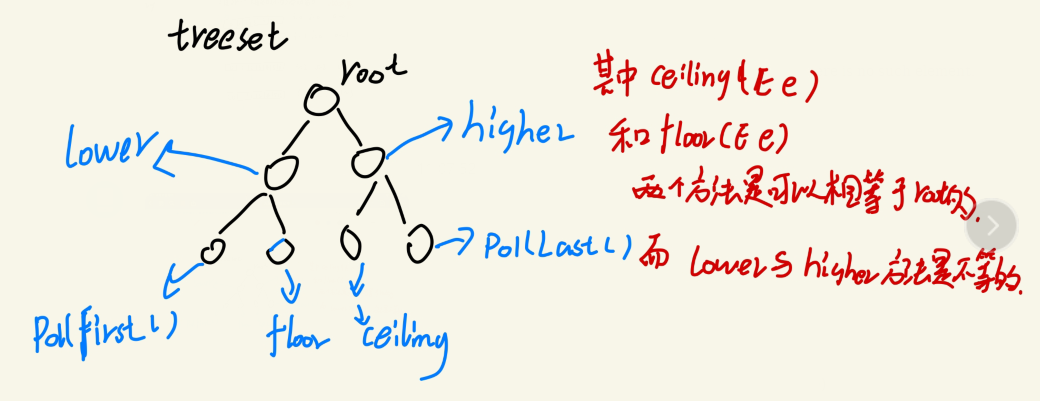 treeset
root
lower
higher
PollFirst()
floor
ceiling
PollLast()
其中 ceiling(E e)
和 floor(E e)
两个方法是可以相等于root的.
而 lower与 higher 方法是不等的.